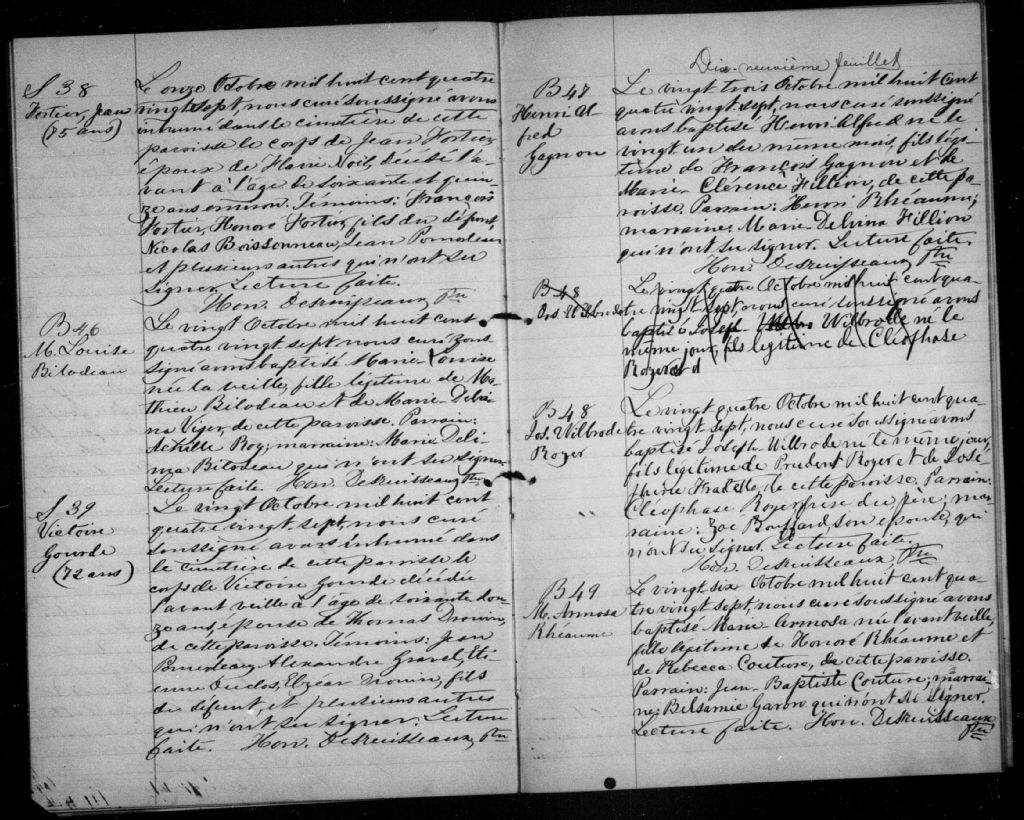 S 38
Fortier, Jean
(75 ans)
Le onze Octobre mil huit cent quatre
vingt sept, nous curé soussigné avons
inhumé dans le cimetière de cette
paroisse le corps de Jean Fortier,
époux de Flavie Noël, décédé l'a-
vant à l'âge de soixante et quin-
ze ans environ. Témoins: François
Fortier, Honoré Fortier, fils du défunt,
Nicolas Boissonneau, Jean Pomerleau
et plusieurs autres qui n'ont su
signer. Lecture faite.
Hon. Desruisseaux Ptre
B 46
M. Louise
Bilodeau
Le vingt Octobre mil huit cent
quatre vingt sept nous curé sous
signé avons baptisé Marie Louise
née la veille, fille légitime de Ma-
thieu Bilodeau et de Marie Delvi-
na Viger, de cette paroisse. Parrain:
Achille Roy; marraine: Marie Deli-
ma Bilodeau qui n'ont su signer.
Lecture faite. Hon. Desruisseaux Ptre
S 39
Victoire
Gourde
(72 ans)
Le vingt Octobre mil huit cent
quatre vingt sept, nous curé
soussigné avons inhumé dans
le cimetière de cette paroisse le
corps de Victoire Gourde décédée
l'avant veille à l'âge de soixante dou-
ze ans, épouse de Thomas Drouin,
de cette paroisse. Témoins: Jean
Pomerleau, Alexandre Gravel, Eti-
enne Duclos, Elzéar Drouin, fils
du défunt, et plusieurs autres
qui n'ont su signer. Lecture
faite. Hon. Desruisseaux, Ptre
Dix-neuvième feuillet
B 47
Henri Al
fred
Gagnon
Le vingt trois Octobre mil huit cent
quatre vingt sept, nous curé soussigné
avons baptisé Henri Alfred né le
vingt un du même mois, fils légi-
time de François Gagnon et de
Marie Clérence Fillion, de cette pa-
roisse. Parrain: Henri Rhéaume;
marraine, Marie Delvina Fillion
qui n'ont su signer. Lecture faite.
Hon. Desruisseaux Ptre
B 48
Jos. Wilbrod
Le vingt quatre Octobre mil huit cent qua-
tre vingt sept, nous curé soussigné avons
baptisé Joseph Wilbrode né le
même jour, fils légitime de Cléophase
Royer et d
B 48
Jos. Wilbrode
Royer
Le vingt quatre Octobre mil huit cent qua-
tre vingt sept, nous curé soussigné avons
baptisé Joseph Wilbrode né le même jour,
fils légitime de Prudent Royer et de José-
phine Fradette, de cette paroisse. Parrain:
Cléophase Royer, frère du père; mar-
raine: Zoé Bouffard, son épouse, qui
n'ont su signer. Lecture faite.
Hon. Desruisseaux, Ptre
B 49
M. Armosa
Rhéaume
Le vingt six Octobre mil huit cent qua-
tre vingt sept, nous curé soussigné avons
baptisé Marie Armosa née l'avant veille,
fille légitime de Honoré Rhéaume et
de Rebecca Couture, de cette paroisse.
Parrain: Jean-Baptiste Couture; marrai-
ne, Belsamie Garon qui n'ont su signer.
Lecture faite. Hon. Desruisseaux
Ptre